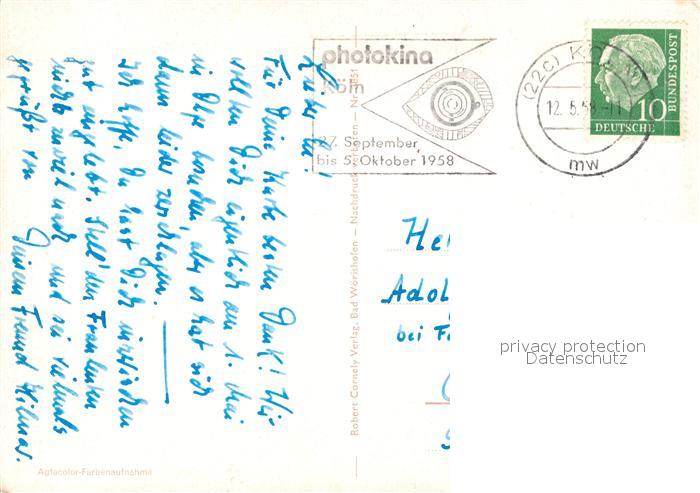 photokina
Köln
27. September
bis 5. Oktober 1958
(22c) KÖLN
12.5.58-11
mw
10
DEUTSCHE
BUNDESPOST
Für Deine Karte besten Dank! Wir
wollten Dich eigentlich am 1. Mai
in Olpe besuchen, aber es hat sich
dann leider zerschlagen.
Ich hoffe, Du hast Dich inzwischen
gut eingelebt. Stell' den Frauenleuten
nicht zuviel nach und sei vielmals
gegrüßt von Deinem Freund Hilmar.
Robert Cornely Verlag, Bad Wörishofen — Nachdruck verboten — Nr. 3851
He
Adol
bei F
privacy protection
Datenschutz
Agfacolor-Farbenaufnahme